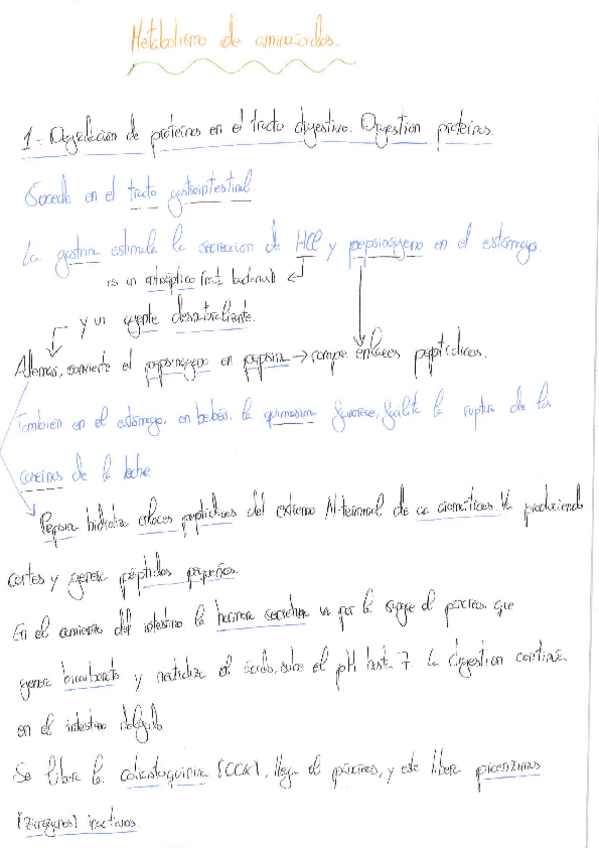 Metabolismo de aminoácidos.
1.- Degradación de proteínas en el tracto digestivo. Digestión proteínas.
Sucede en el tracto gastrointestinal.
La gastrina estimula la secreción de HCl y pepsinógeno en el estómago.
es un antiséptico (mata bacterias)
y un agente desnaturalizante.
Además, convierte el pepsinógeno en pepsina → rompe enlaces peptídicos.
También en el estómago, en bebés, la quimosina favorece, facilita la ruptura de las
caseínas de la leche
Pepsina hidroliza enlaces peptídicos del extremo N-terminal de aa aromáticos. Va produciendo
cortes y genera péptidos pequeños.
En el comienzo del intestino la hormona secretina va por la sangre al páncreas que
genera bicarbonato y neutraliza el ácido, sube el pH hasta 7. La digestión continúa
en el intestino delgado.
Se libera la colecistoquinina (CCK), llega al páncreas, y este libera proenzimas
(zimógenos) inactivos.